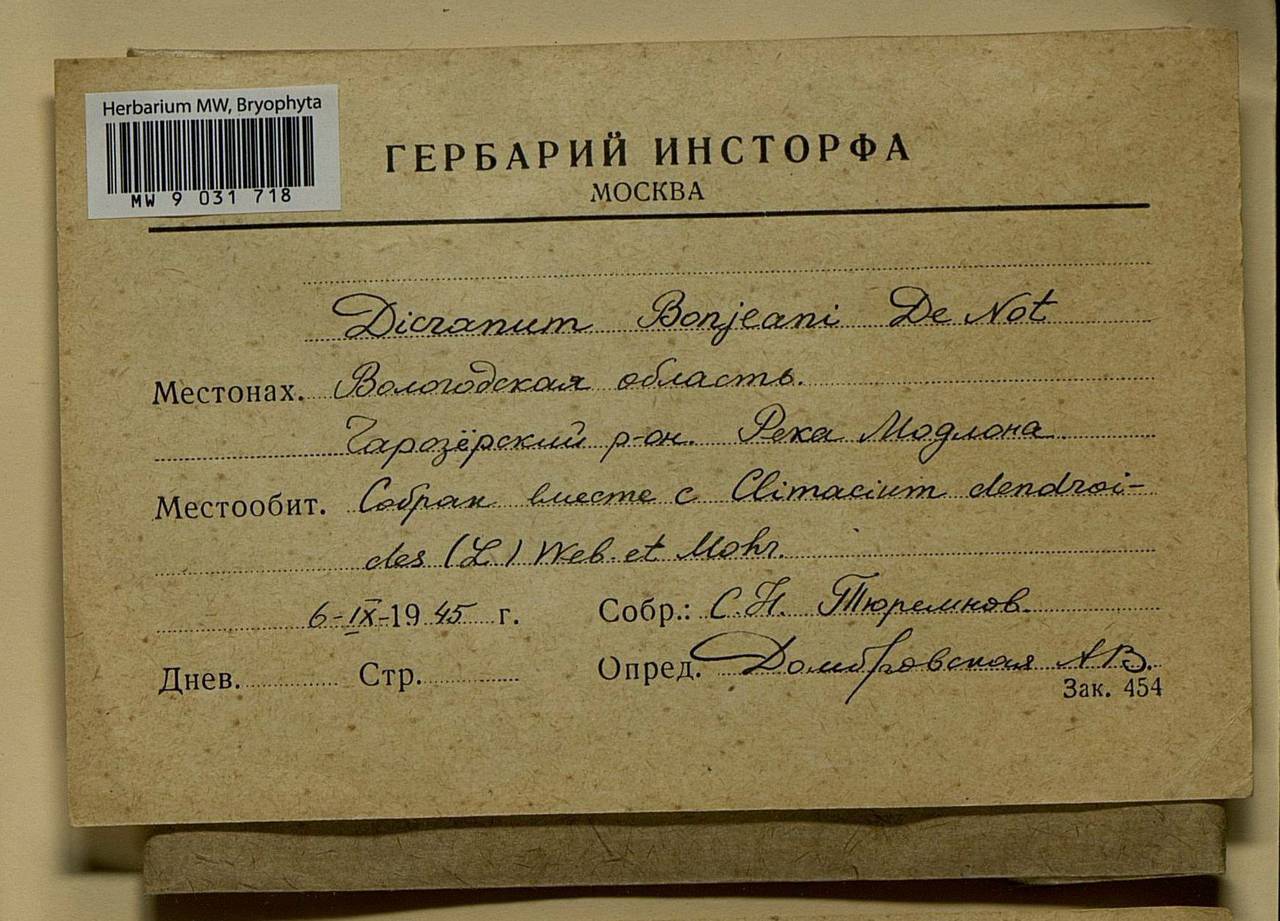 Herbarium MW, Bryophyta
MW 9 031 718
ГЕРБАРИЙ ИНСТОРФА
МОСКВА
Dicranum Bonjeani De Not
Местонах. Вологодская область.
Чарозёрский р-он. Река Модлона
Местообит. Собран вместе с Climacium dendroi-
des (L.) Web. et Mohr.
6-IX-1945 г. Собр.: С.Н. Тюремнов.
Днев. Стр. Опред. Домбровская А.В.
Зак. 454